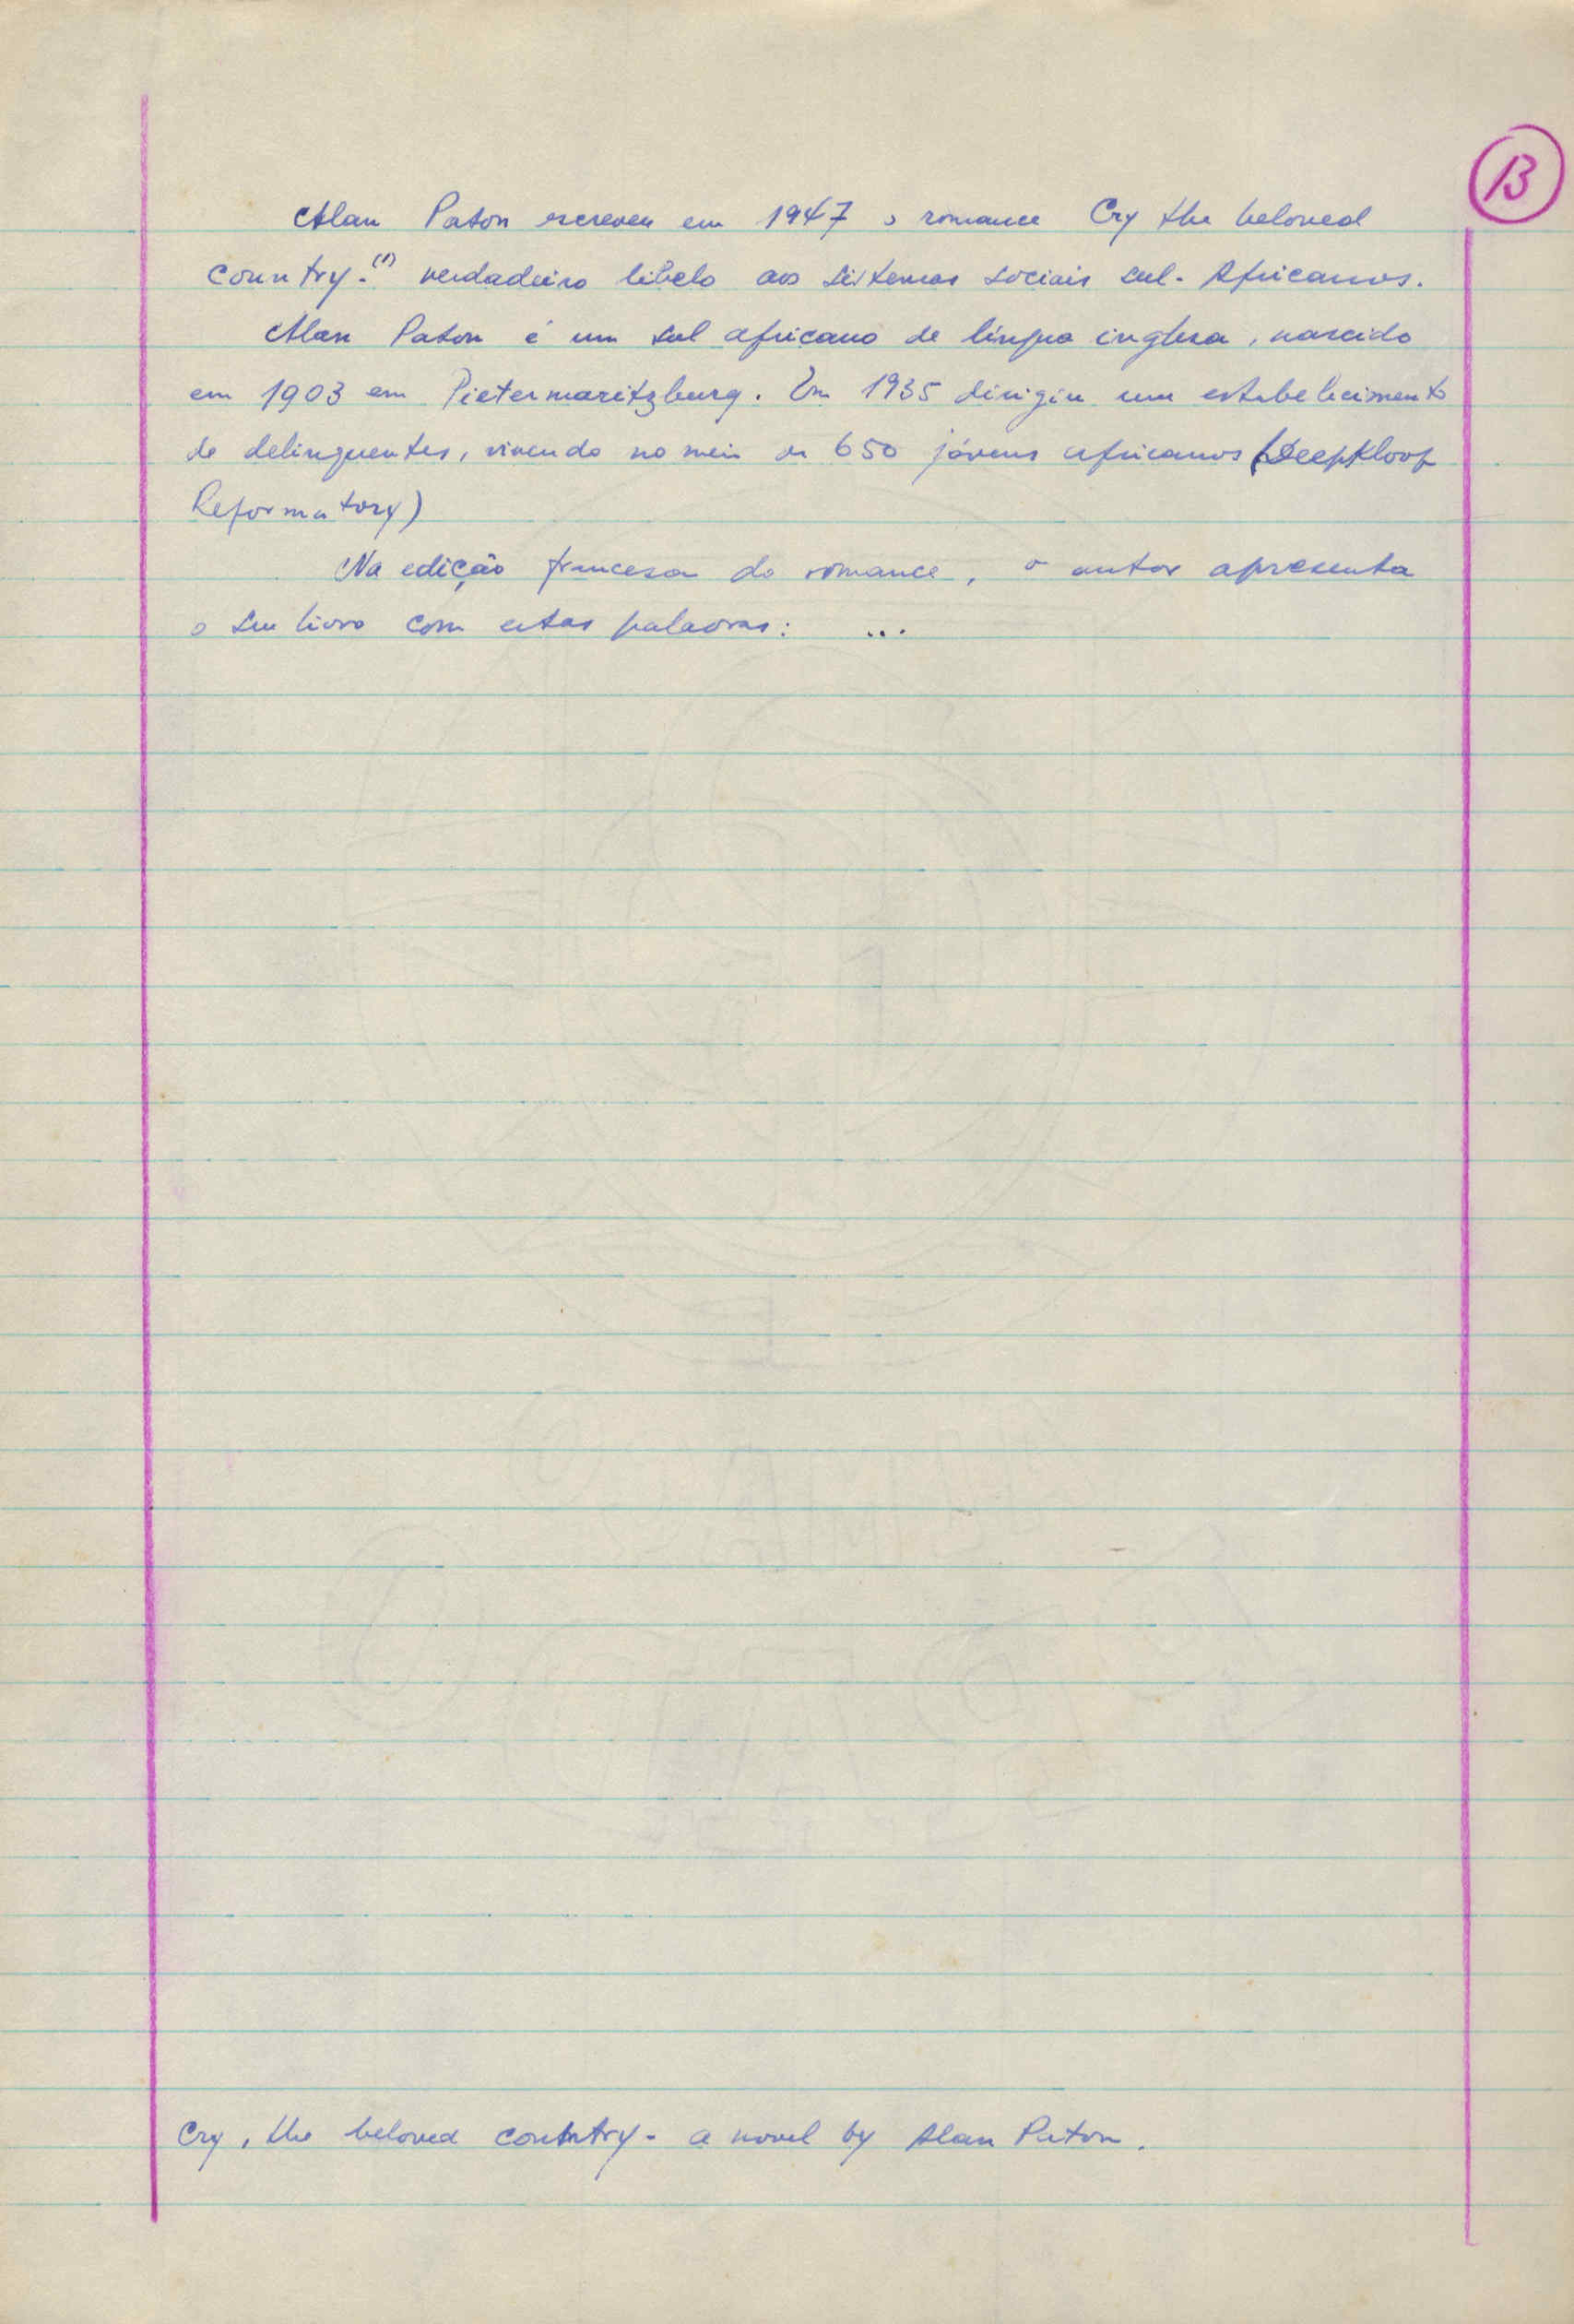 B
Alan Paton escreveu em 1947 o romance Cry the beloved
country.(1) verdadeiro libelo aos sistemas sociais sul-Africanos.
Alan Paton é um sul africano de língua inglesa, nascido
em 1903 em Pietermaritzburg. Em 1935 dirigiu um estabelecimento
de delinquentes, vivendo no meio de 650 jóvens africanos (Deepkloof
Reformatory)
Na edição francesa do romance, o autor apresenta
o seu livro com estas palavras: ...
Cry, the beloved country - a novel by Alan Paton.